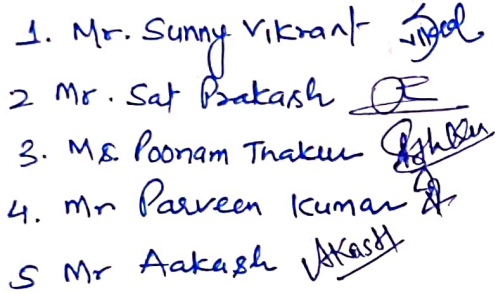 1. Mr. Sunny Vikrant
2 Mr. Sat Prakash
3. Ms. Poonam Thakur
4. Mr Parveen Kumar
5 Mr Aakash Akash